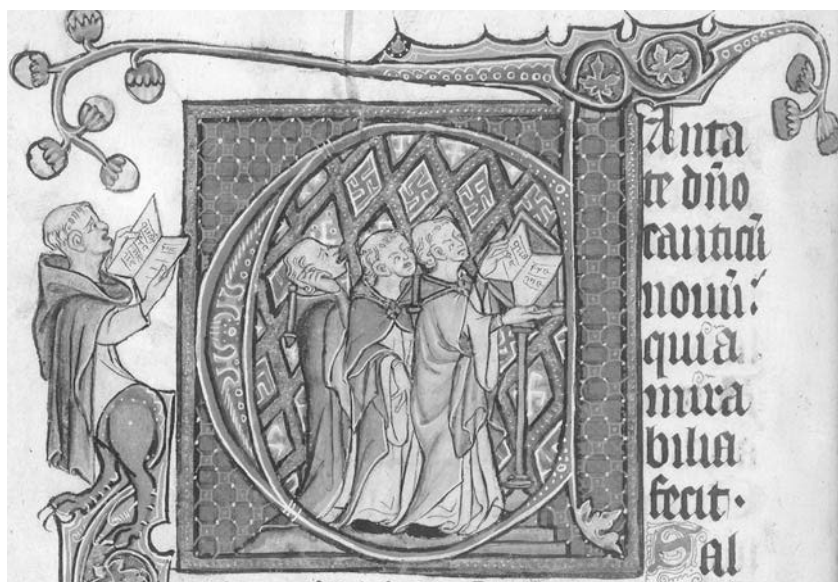 Anta
te dño
canticū
nouū:
quia
mira
bilia
fecit·
Sal